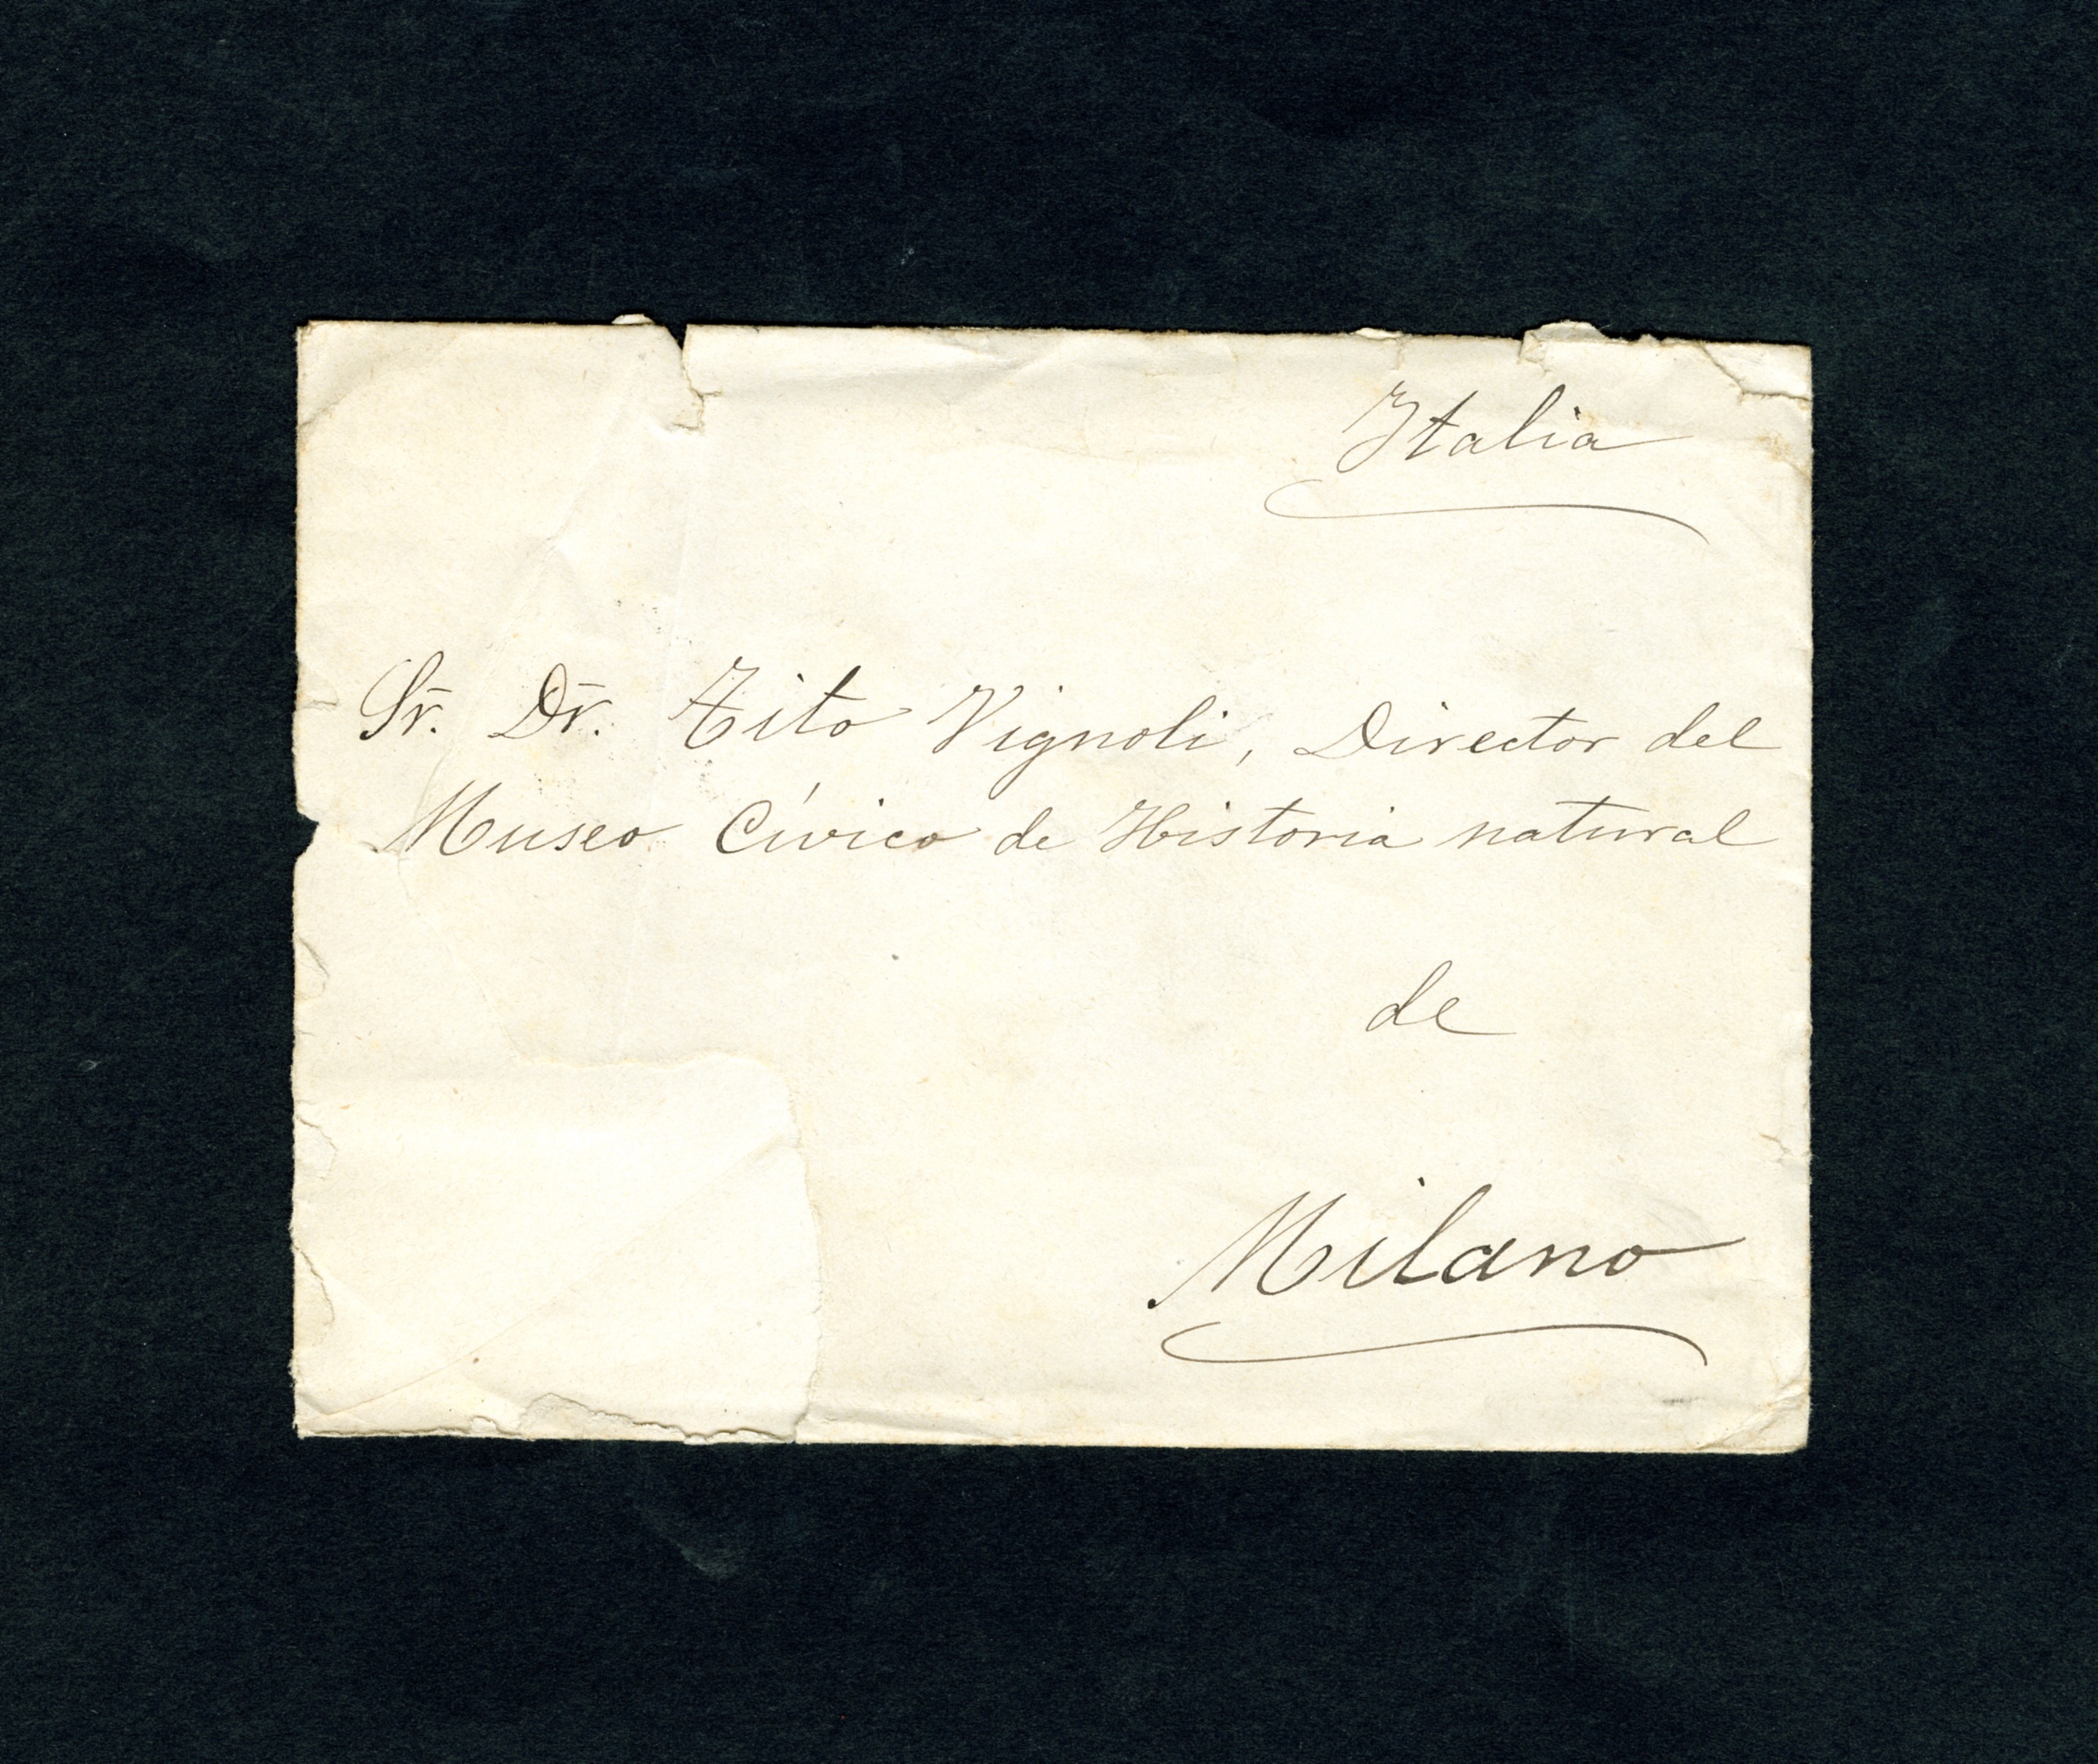 Italia
Sr. Dr. Tito Vignoli, Director del
Museo Cívico de Historia natural
de
Milano